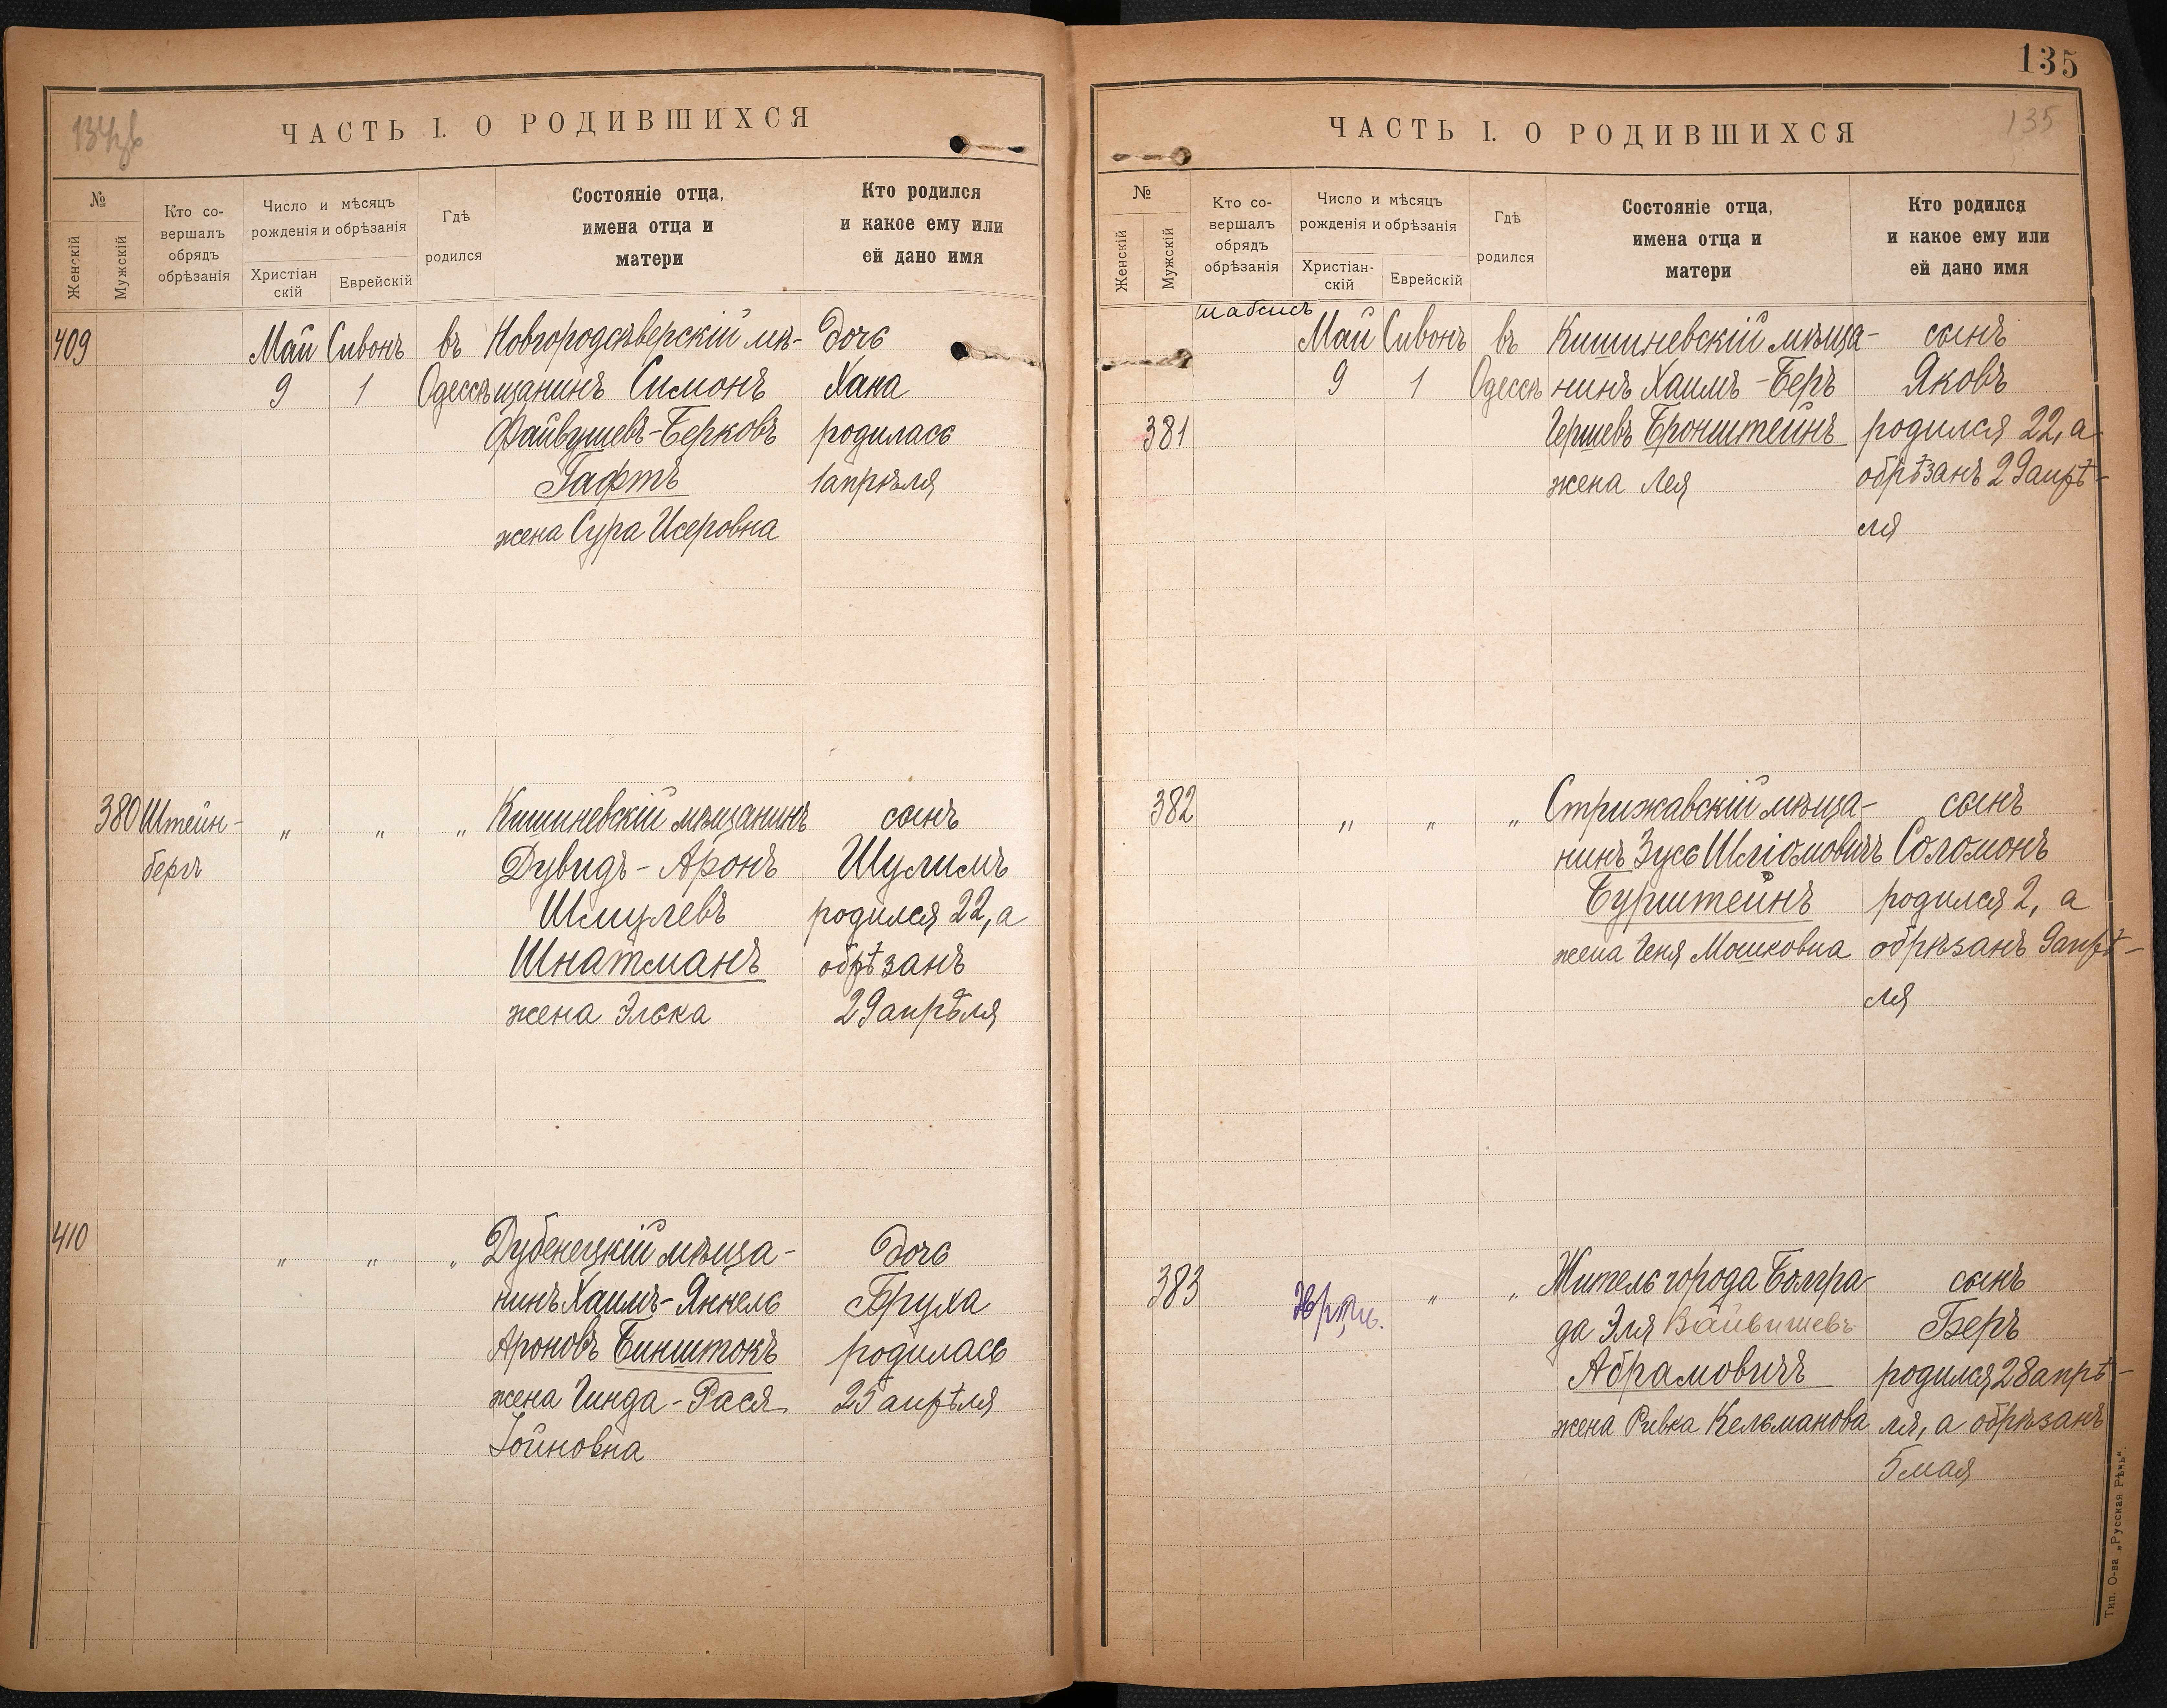 134об
ЧАСТЬ I. О РОДИВШИХСЯ
№
Женскій
Мужскій
Кто со-
вершалъ
обрядъ
обрѣзанія
Число и мѣсяцъ
рожденія и обрѣзанія
Христіан
скій
Еврейскій
Гдѣ
родился
Состояніе отца,
имена отца и
матери
Кто родился
и какое ему или
ей дано имя
409 Май Сивонъ въ Новгородсѣверскій мѣ- дочь
9 1 Одессѣ щанинъ Симонъ Хана
Файвушевъ-Берковъ родилась
Гафтъ 1 апрѣля
жена Сура Исеровна
380 Штейн- „ „ „ Кишиневскій мѣщанинъ сынъ
бергъ Дувидъ-Аронъ Шулимъ
Шмулевъ родился 22, а
Шнатманъ обрѣзанъ
жена Элька 29 апрѣля
410 „ „ „ Дубенецкій мѣща- дочь
нинъ Хаимъ-Янкель Бруха
Ароновъ Бинштокъ родилась
жена Гинда-Рася 25 апрѣля
Іойновна
135
135
ЧАСТЬ I. О РОДИВШИХСЯ
№
Женскій
Мужскій
Кто со-
вершалъ
обрядъ
обрѣзанія
Число и мѣсяцъ
рожденія и обрѣзанія
Христіан-
скій
Еврейскій
Гдѣ
родился
Состояніе отца,
имена отца и
матери
Кто родился
и какое ему или
ей дано имя
шабсисъ
Май Сивонъ въ Кишиневскій мѣща- сынъ
9 1 Одессѣ нинъ Хаимъ-Беръ Яковъ
381 Гершевъ Бронштейнъ родился 22, а
жена Лея обрѣзанъ 29 апрѣ-
ля
382 „ „ „ Стрижавскій мѣща- сынъ
нинъ Зусь Шліомовичъ Соломонъ
Бурштейнъ родился 2, а
жена Геня Мошковна обрѣзанъ 9 апрѣ-
ля
383 „ „ Житель города Болгра- сынъ
да Эля Вайвишевъ Беръ
Абрамовичъ родился 28 апрѣ-
жена Ривка Кельманова ля, а обрѣзанъ
5 мая
Тип. О-ва „Русская Рѣчь“